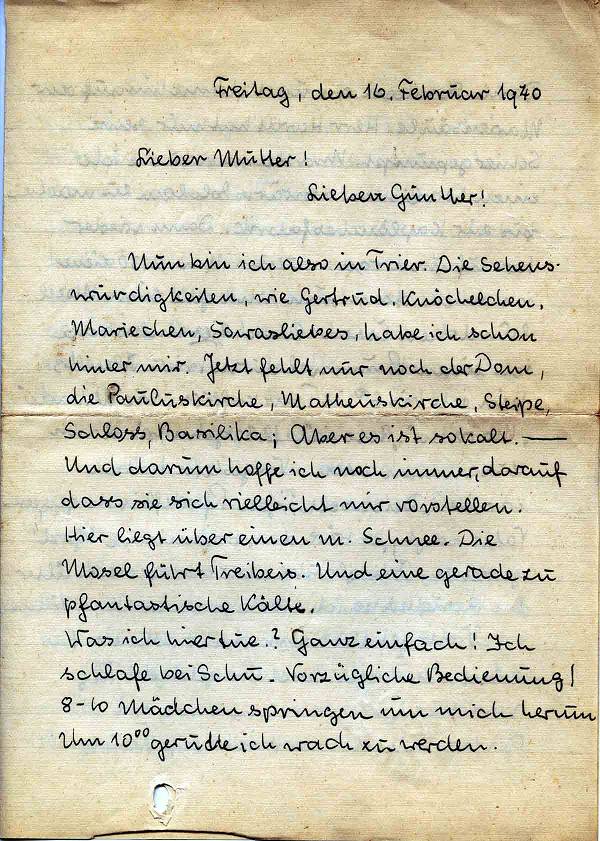 Freitag, den 16. Februar 1940
Lieber Mutter!
Lieber Günther!
Nun bin ich also in Trier. Die Sehens-
würdigkeiten, wie Gertrud. Knöchelchen.
Mariechen, Sowasliebes, habe ich schon
hinter mir. Jetzt fehlt nur noch der Dom,
die Pauluskirche, Matheuskirche, Steipe,
Schloss, Basilika; Aber es ist so kalt. —
Und darum hoffe ich noch immer, darauf
dass sie sich vielleicht mir vorstellen.
Hier liegt über einen m. Schnee. Die
Mosel führt Treibeis. Und eine gerade zu
phantastische Kälte.
Was ich hier tue.? Ganz einfach! Ich
schlafe bei Schu. Vorzügliche Bedienung!
8-10 Mädchen springen um mich herum
Um 10⁰⁰ geruhe ich wach zu werden.